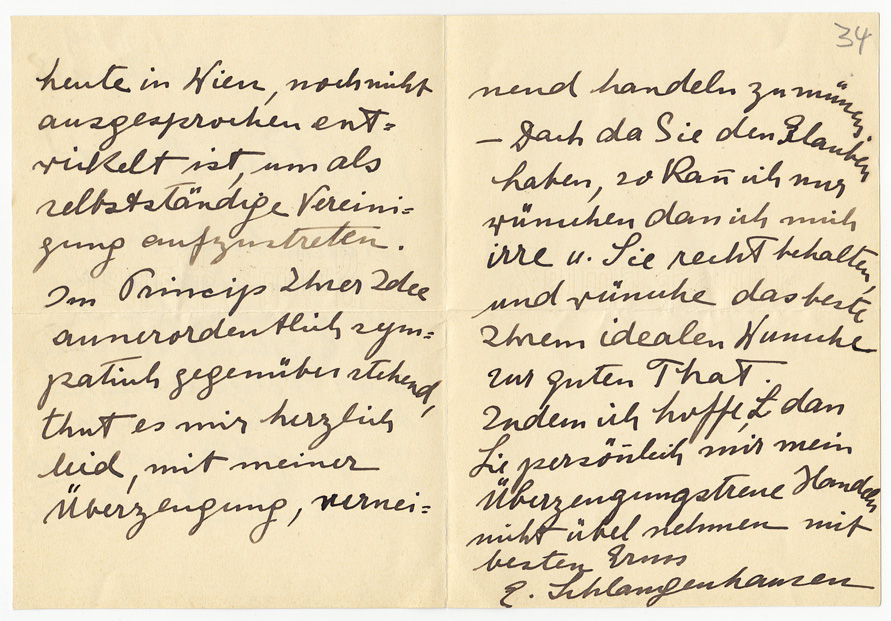 34
heute in Wien, noch nicht
ausgesprochen ent=
wickelt ist, um als
selbstständige Vereini=
gung aufzutreten.
Im Princip Ihrer Idee
ausserordentlich sym=
patisch gegenüber stehend,
thut es mir herzlich
leid, mit meiner
Überzeugung, vernei=
nend handeln zu müssen.
– Doch da Sie den Glauben
haben, so kan̄ ich nur
wünschen dass ich mich
irre u. Sie recht behalten,
und wünsche das beste
Ihrem idealen Wunsche
zur guten That.
Indem ich hoffe, dass
Sie persönlich mir mein
Überzeugungstreue Handeln
nicht übel nehmen mit
besten Gruss
E. Schlangenhausen